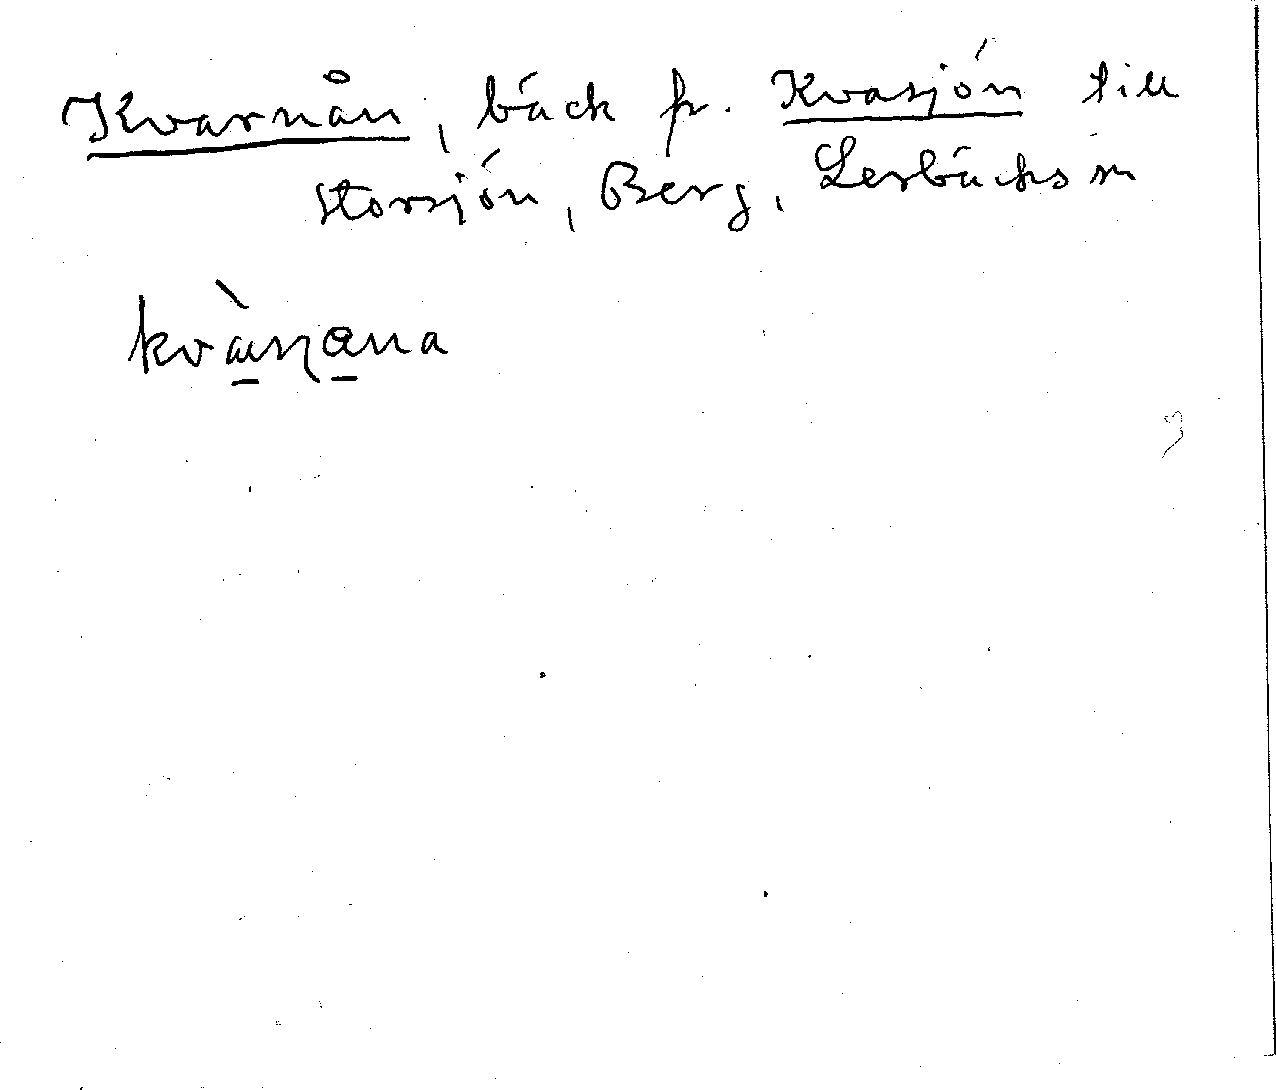 Kvarnån, bäck fr. Kvasjön till
Storsjön, Berg, Lerbäcks sn